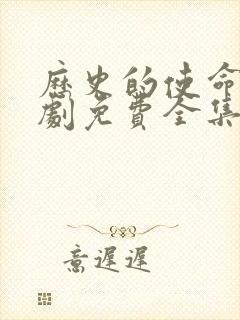 歷史的使命
劇免費全集
意遲遲